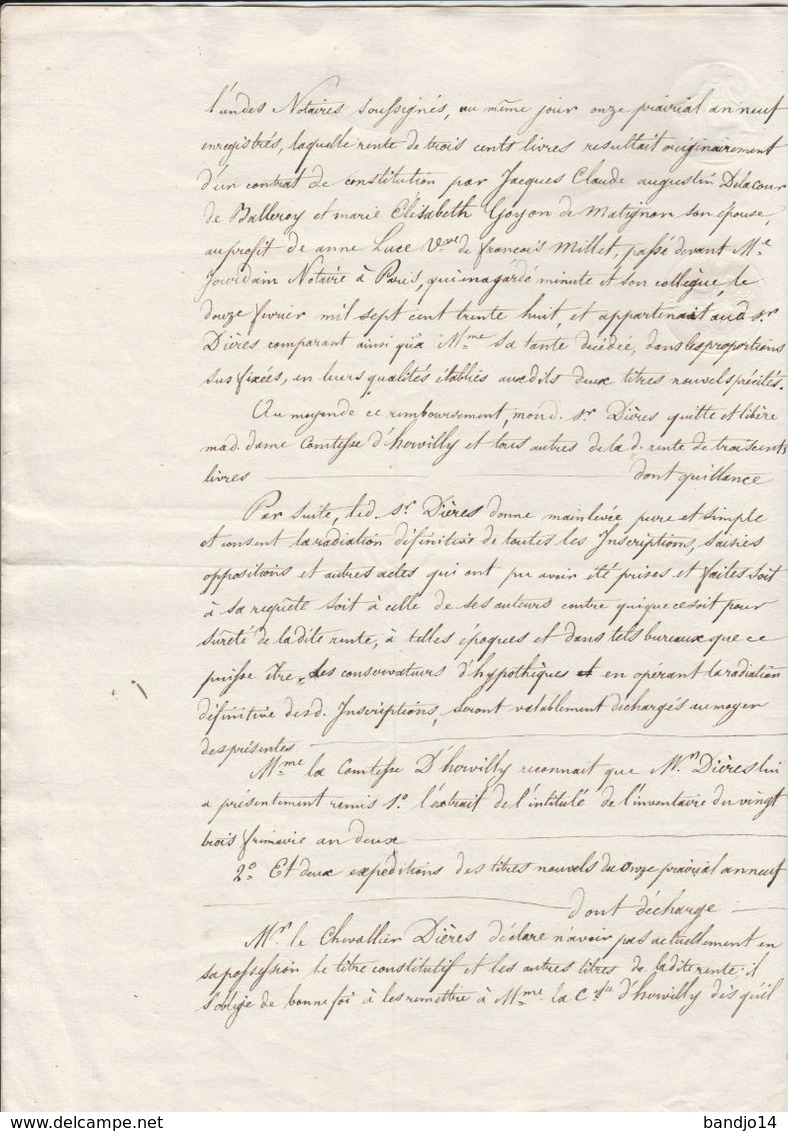 l'undes Notaires soussignés, au même jour onze prairial an neuf
enregistrés, laquelle rente de trois cents livres resultait originairement
d'un contrat de constitution par Jacques Claude augustin Delacour
de Balleroy et marie Élisabeth Goyon de Matignon son épouse,
au profit de anne Luce Vve de françois Millet, passé devant Me
Jourdain Notaire à Paris, qui en a gardé minute et son collègue, le
douze fevrier mil sept cent trente huit, et appartenait aud. sr.
Dières comparant ainsi qu'à Mme sa tante décédée, dans les proportions
sus fixées, en leurs qualités établies auxdits deux titres nouvels précités.
Au moyen de ce remboursement, mond. sr. Dières quitte et libère
mad. dame Comtesse d'hervilly et tous autres de la d. rente de trois cents
livres dont quittance
Par suite, led. sr. Dières donne mainlevée pure et simple
et consent la radiation définitive de toutes les Inscriptions, saisies
oppositions et autres actes qui ont pu avoir été prises et faites soit
à sa requête soit à celle de ses auteurs contre qui que ce soit pour
sûreté de la dite rente, à telles époques et dans tels bureaux que ce
puisse être, les conservateurs d'hypothèques et en opérant la radiation
définitive desd. Inscriptions, seront valablement déchargés au moyen
des présentes
Mme la Comtesse D'hervilly reconnait que Mr Dières lui
a présentement remis 1o. l'extrait de l'intitulé de l'inventaire du vingt
trois frimaire an deux
2o. Et deux expeditions des titres nouvels du onze prairial an neuf
dont décharge
Mr. le Chevallier Dières déclare n'avoir pas actuellement en
sa possession le titre constitutif et les autres titres de la dite rente; il
s'oblige de bonne foi à les remettre à Mme la Ctesse d'hervilly dès qu'il
www.delcampe.net
bandjo14